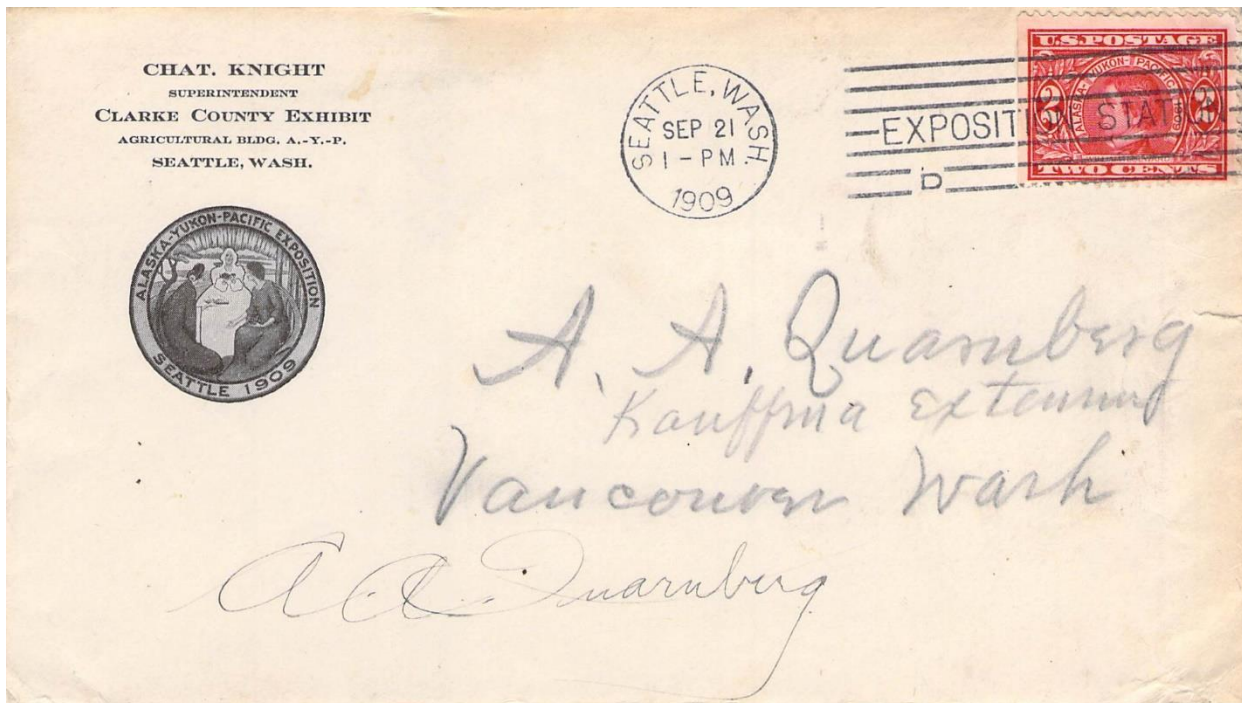 CHAT. KNIGHT
SUPERINTENDENT
CLARKE COUNTY EXHIBIT
AGRICULTURAL BLDG. A.-Y.-P.
SEATTLE, WASH.
ALASKA-YUKON-PACIFIC EXPOSITION
SEATTLE 1909
SEATTLE, WASH.
SEP 21
1-PM
1909
EXPOSITION STATION
U.S.POSTAGE
ALASKA-YUKON-PACIFIC 1909
2 2
TWO CENTS
A. A. Quarnberg
Kauffma Extension
Vancouver Wash
A. A. Quarnberg